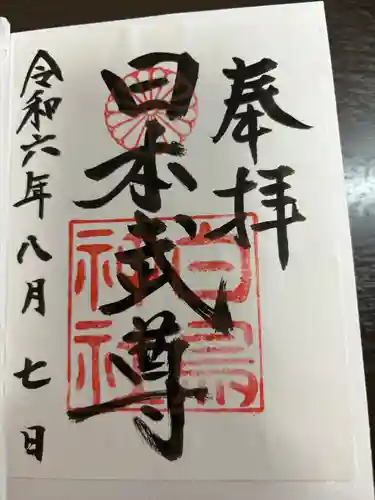 奉拝
日本武尊
白鳥神社
令和六年八月七日